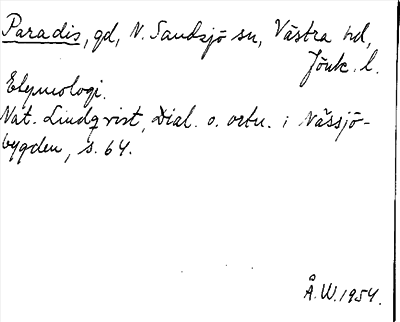 Paradis, gd, N. Sandsjö sn, Västra hd,
Jönk. l.
Etymologi.
Nat. Lindqvist, Dial. o. ortn. i Nässjö-
bygden, s. 64.
Å.W. 1954.